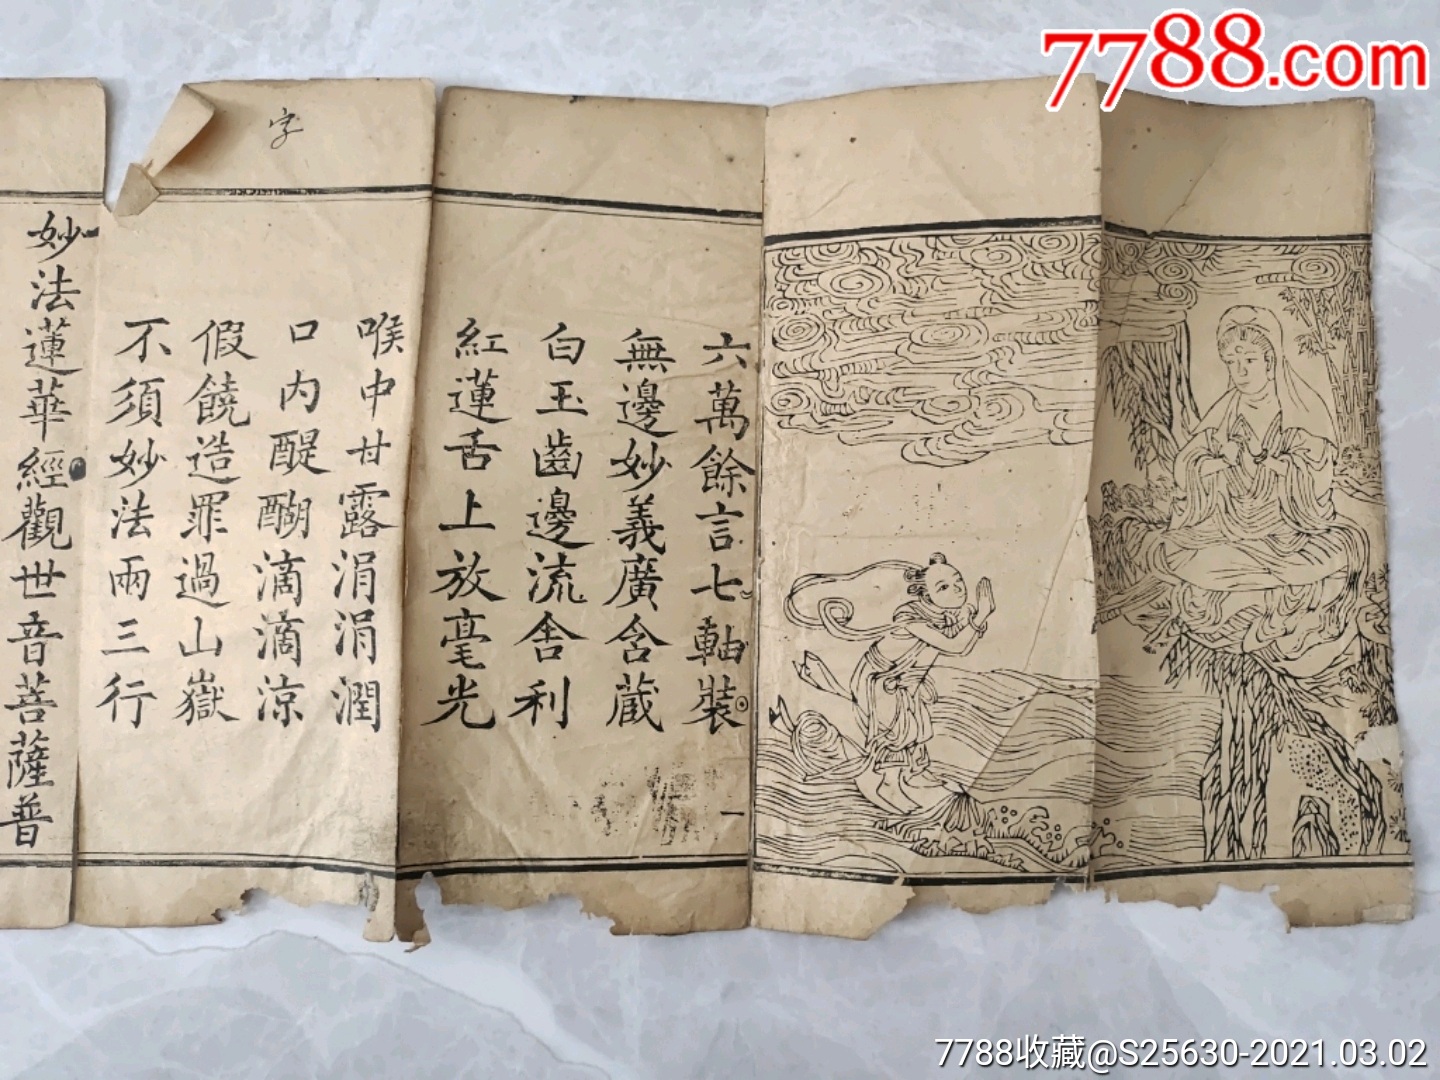 7788.com
字
六萬餘言七軸裝
無邊妙義廣含藏
白玉齒邊流舍利
紅蓮舌上放毫光
一
喉中甘露涓涓潤
口内醍醐滴滴凉
假饒造罪過山嶽
不須妙法兩三行
妙法蓮華經觀世音菩薩普
7788收藏@S25630-2021.03.02